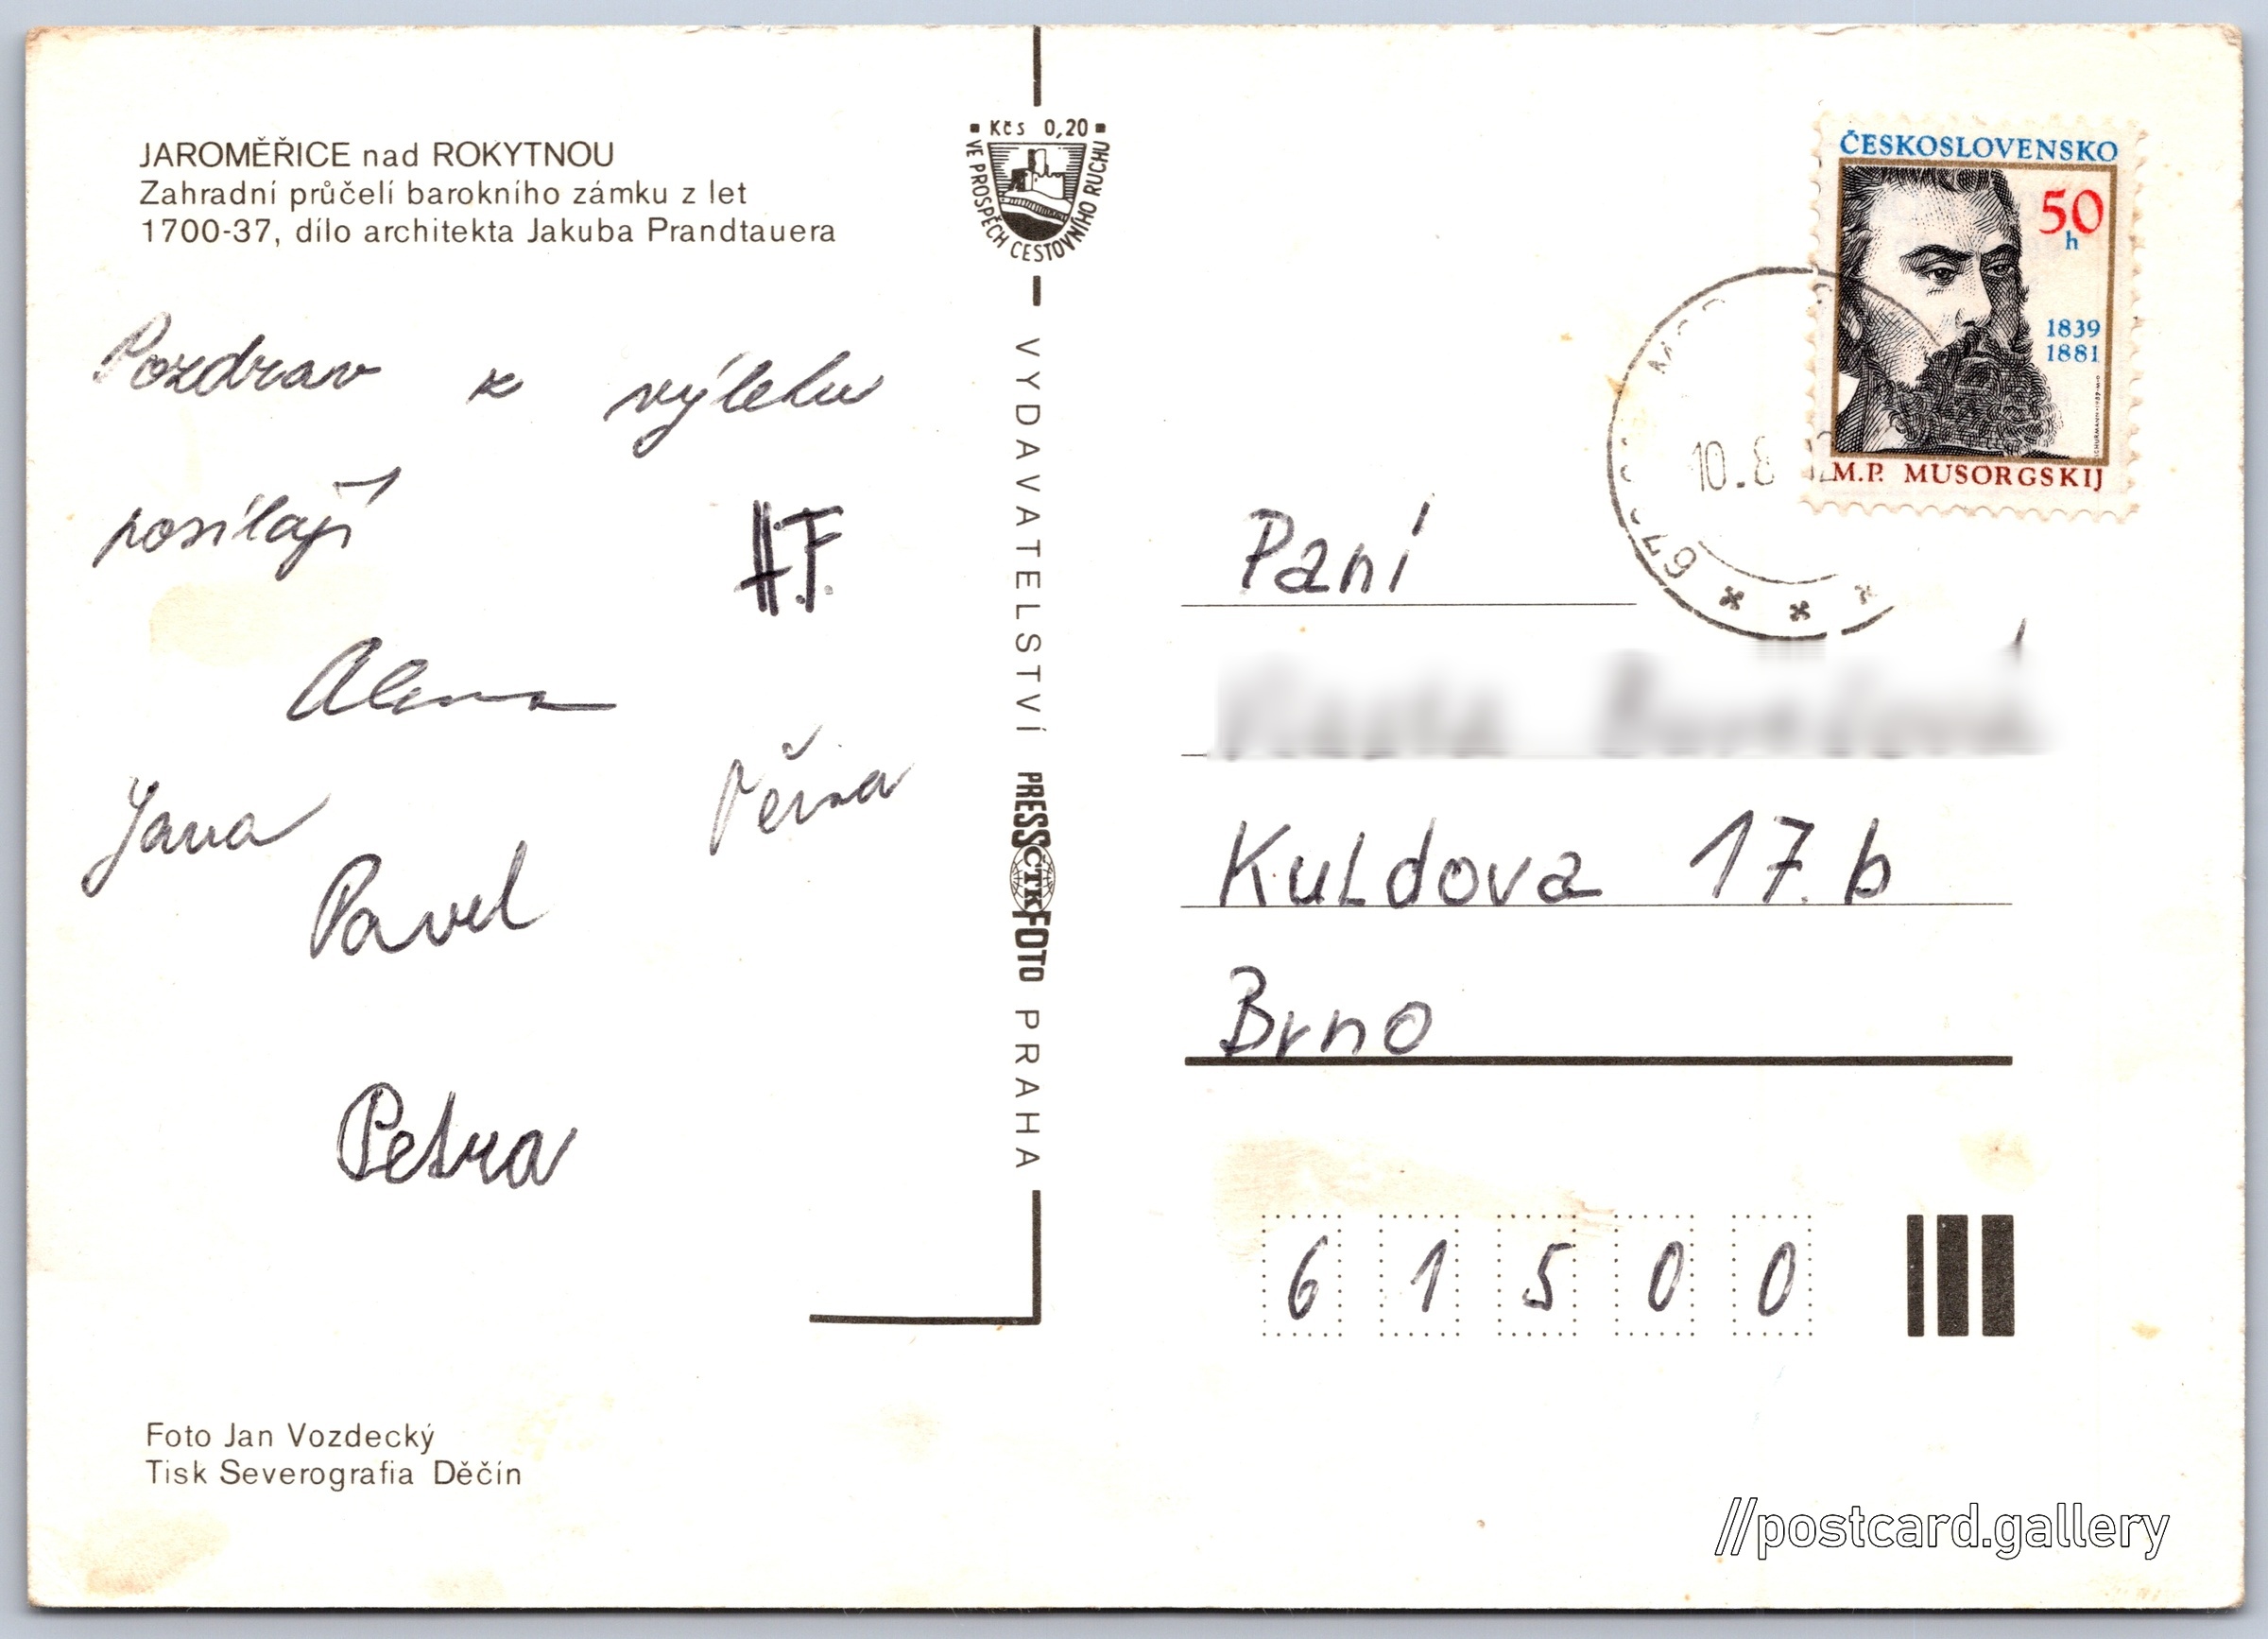 JAROMĚŘICE nad ROKYTNOU
Zahradní průčelí barokního zámku z let
1700-37, dílo architekta Jakuba Prandtauera
Pozdrav z výletu
posílají
H.F.
Alena
Jana
Věrka
Pavel
Petra
Foto Jan Vozdecký
Tisk Severografia Děčín
Kčs 0,20
VE PROSPĚCH CESTOVNÍHO RUCHU
VYDAVATELSTVÍ PRESSČTKFOTO PRAHA
ČESKOSLOVENSKO
50
h
1839
1881
M.P. MUSORGSKIJ
10.8
67
Paní
Kuldova 17.b
Brno
6 1 5 0 0
//postcard.gallery